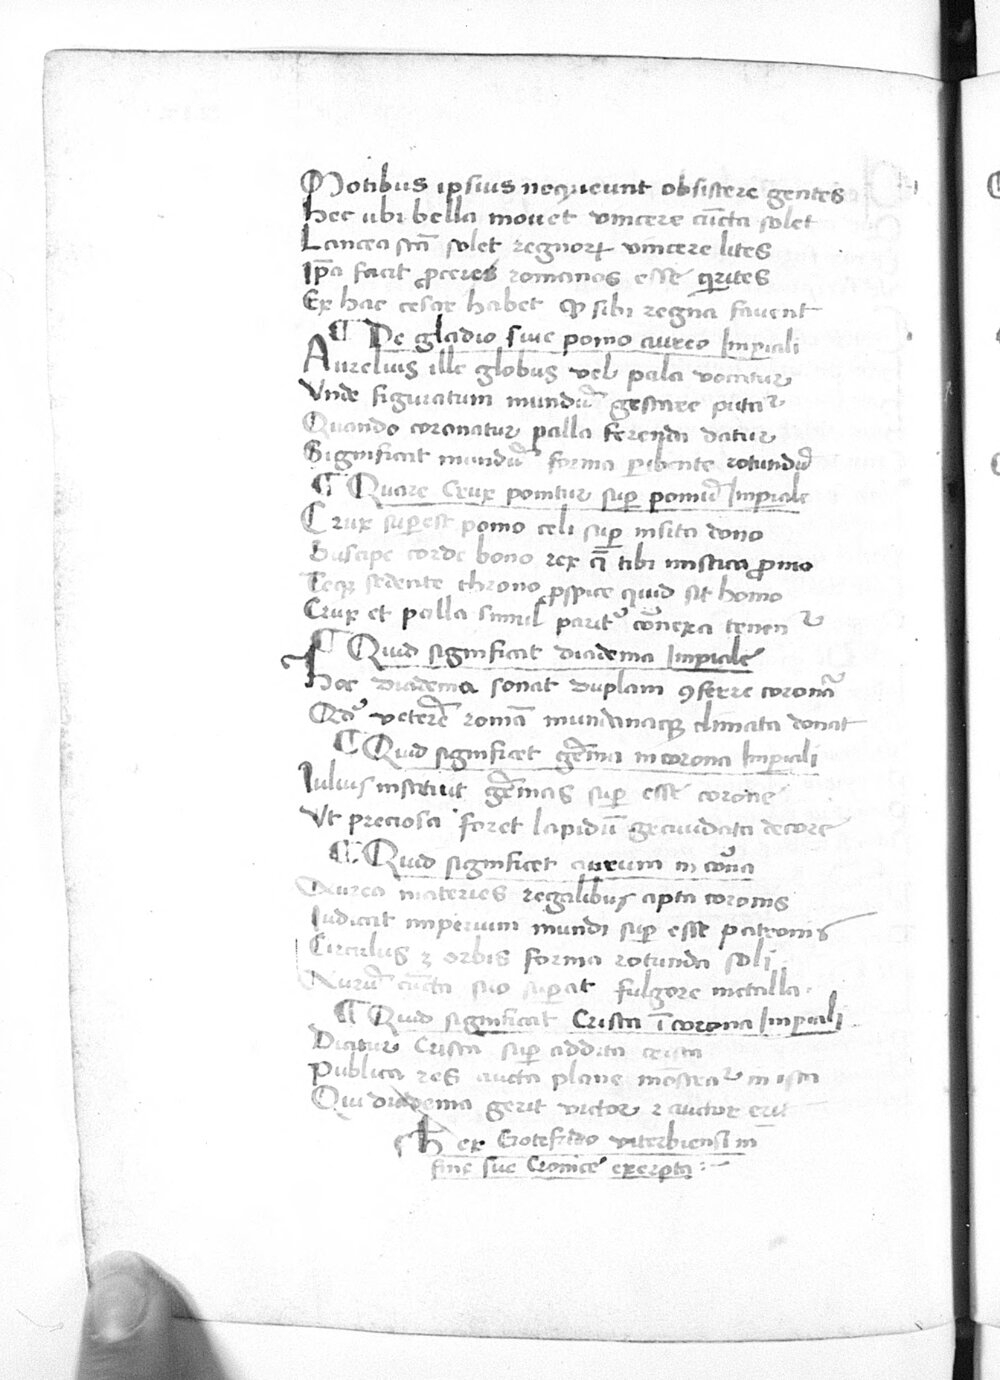 Motibus ipsius nequeunt obsistere gentes
Hec ubi bella mouet vincere cūcta solet
Lancea scā solet regnoꝝ vincere lites
Ip̄a facit ꝓceres romanos esse qirites
Ex hac cesar habet ꝙ sibi regna fauent
¶ De gladio siue pomo aureo Imp̱iali
Aurelius ille globus vel pala vocatur
Vnde figuratum mundū gestare putaᵗ
Quando coronatur palla ferenda datur
Significat mundū forma p̱ibente rotundū
¶ Quare Crux ponitur suꝑ pomū Imp̱iale
Crux sup̱est pomo celi suꝑ insita dono
Suscipe corde bono rex q̄ tibi mistica ꝓmo
Teqꝫ sedente throno ꝓspice quid sit homo
Crux et palla simul parit᾿ cōnexa tenenᵗ
¶ Quid significat diadema Imp̱iale
Hoc diadema sonat duplam ꝯferre coronā
Qd᾿ veterē romā mundanaqꝫ climata donat
¶ Quid significet gēma in corona Imp̱iali
Iulius instituit gēmas suꝑ esse corone
Vt preciosa foret lapidū decore
¶ Quid significet aureum in cōna
Aurea materies regalibus apta coronis
Iudicat imperium mundi suꝑ esse patronis
Circulus ⁊ orbis forma rotunda soli
Aurū cūcta suo sup̱at fulgore metalla
¶ Quid significat Crista ī corona Imp̱iali
Dicitur Crista suꝑ addita crista
Publica res aucta plane mōstraᵗ in ista
Qui diadema gerit victor ⁊ auctor erit
Hec ex Gotefrido viterbiensi in
fine sue Cronice exerpta